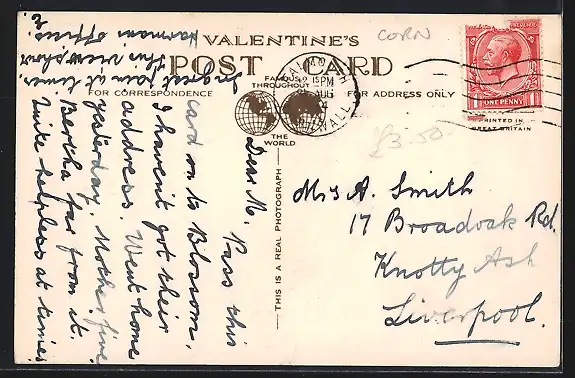 CORN
VALENTINE'S
POST CARD
FAMOUS
THROUGHOUT
THE
WORLD
FOR CORRESPONDENCE
FOR ADDRESS ONLY
THIS IS A REAL PHOTOGRAPH
PRINTED IN
GREAT BRITAIN
ONE PENNY
15 PM
AUG
£3.50
Dear M. Pass this
card on to Blossom.
I haven't got their
address. Went home
yesterday. Mother fine
Bertha far from it.
Quite helpless at times
In great pain at times.
This view show
harmans office.
Mrs A. Smith
17 Broadoak Rd.
Knotty Ash
Liverpool.